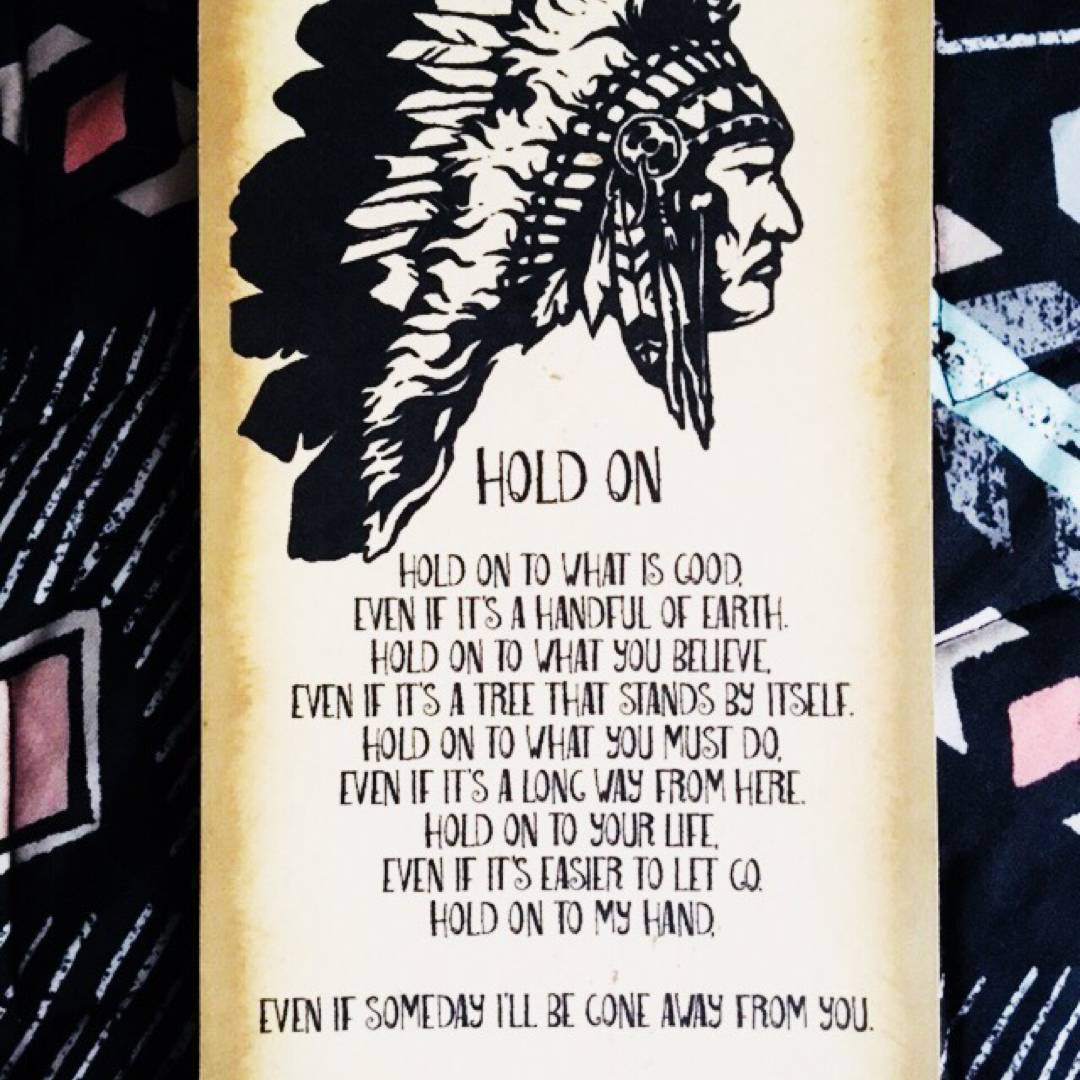 HOLD ON
HOLD ON TO WHAT IS GOOD,
EVEN IF IT'S A HANDFUL OF EARTH.
HOLD ON TO WHAT YOU BELIEVE,
EVEN IF IT'S A TREE THAT STANDS BY ITSELF.
HOLD ON TO WHAT YOU MUST DO,
EVEN IF IT'S A LONG WAY FROM HERE.
HOLD ON TO YOUR LIFE,
EVEN IF IT'S EASIER TO LET GO.
HOLD ON TO MY HAND,
EVEN IF SOMEDAY I'LL BE GONE AWAY FROM YOU.